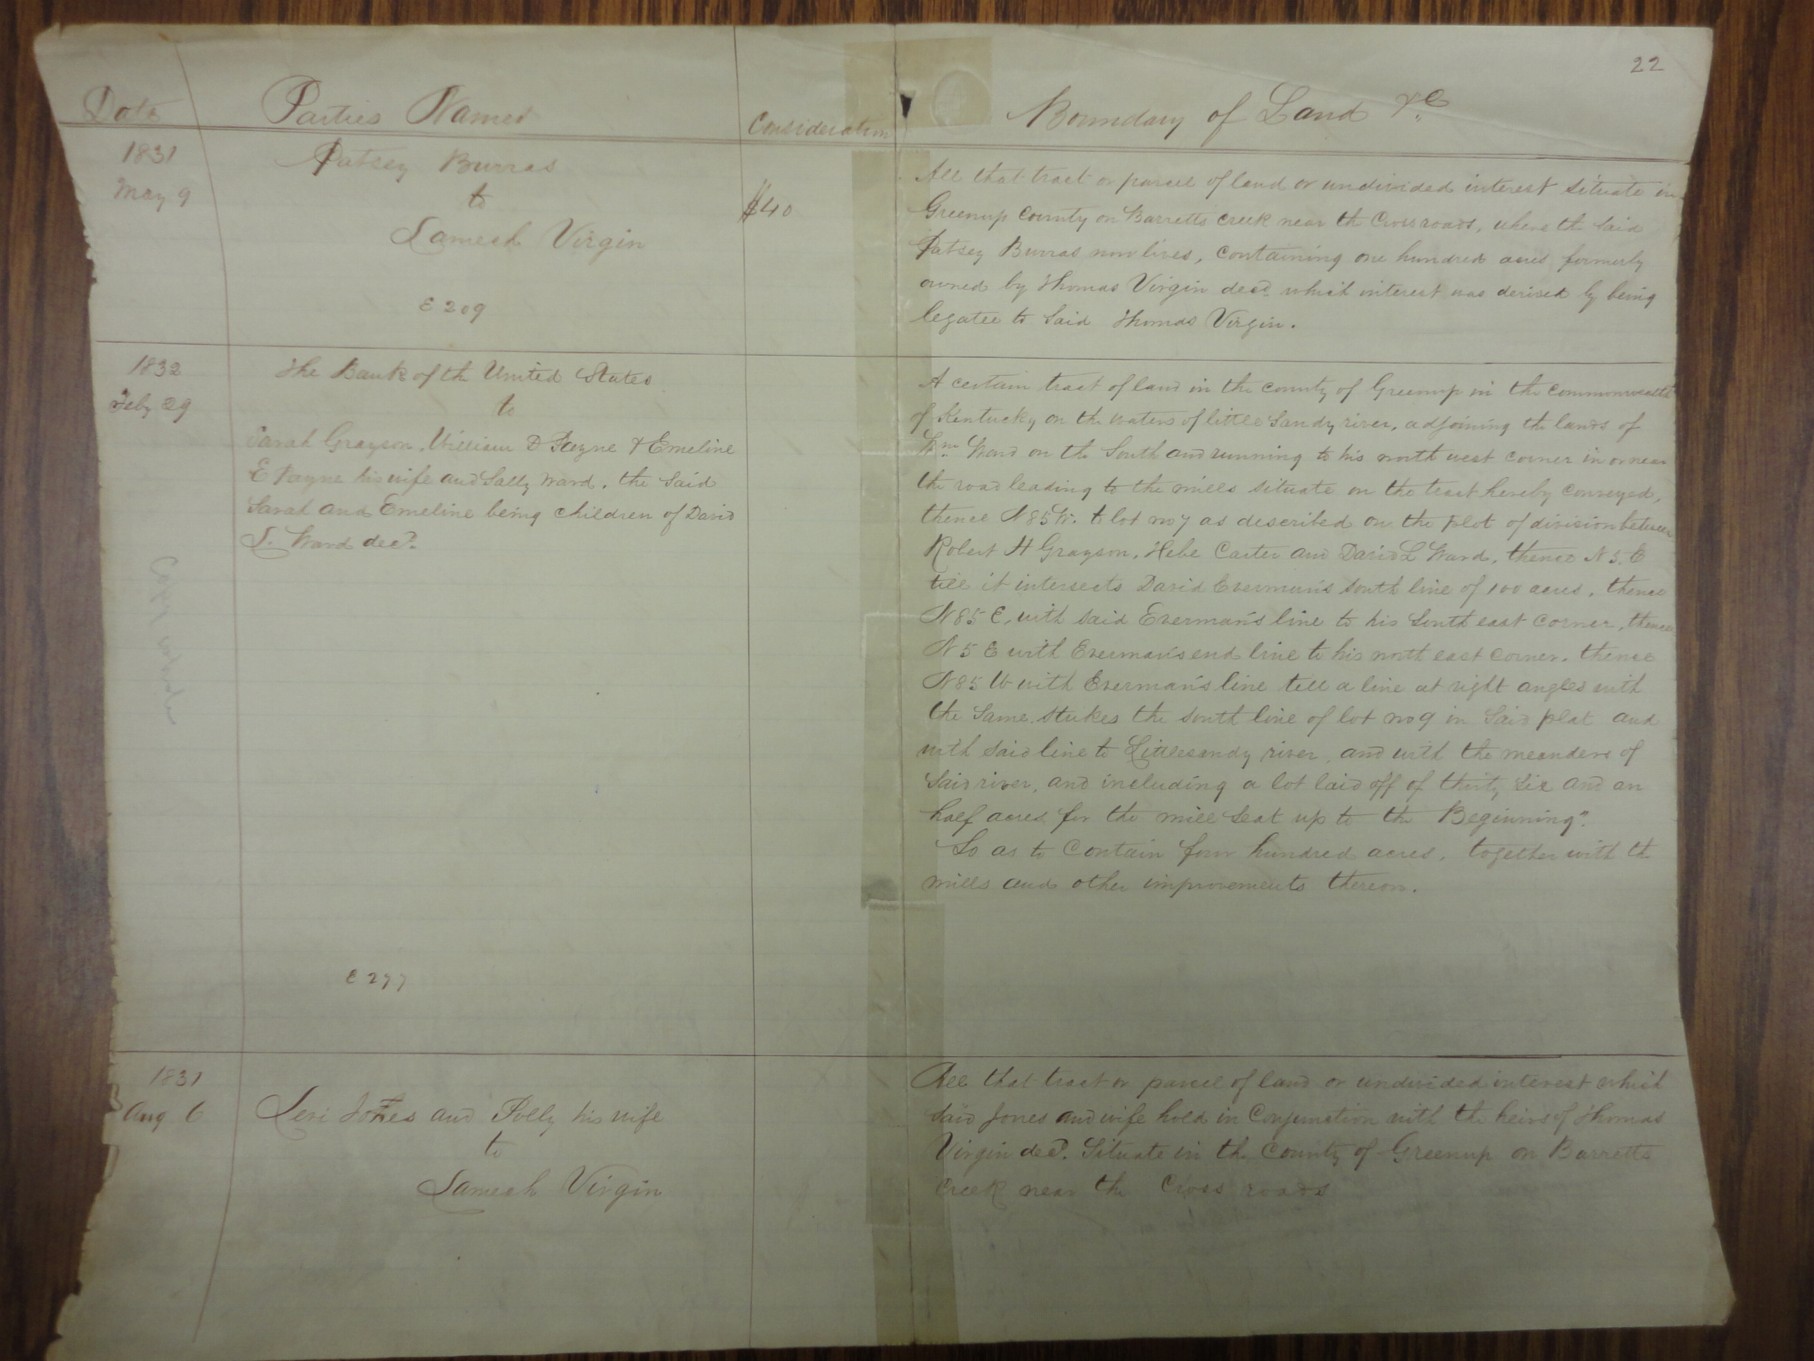 22
Date
Parties Names
Consideration
Boundary of Land &c.
1831
May 9
Patsey Burras
to
Lamech Virgin
E 209
$40
All that tract or parcel of land or undivided interest situate in
Greenup County on Barretts Creek near the Cross roads, where the said
Patsey Burras now lives, containing one hundred acres formerly
owned by Thomas Virgin decd. which interest was derived by being
legatee to said Thomas Virgin.
1832
Feby 29
The Bank of the United States
to
Sarah Grayson, William D Payne & Emeline
E Payne his wife and Sally Ward, the said
Sarah and Emeline being children of David
L. Ward decd.
E 277
A certain tract of land in the county of Greenup in the commonwealth
of Kentucky on the waters of little Sandy river, adjoining the lands of
Wm Ward on the South and running to his north west corner in or near
the road leading to the mills situate on the tract hereby conveyed,
thence N 85 W. to lot no 7 as described on the plot of division between
Robert H Grayson, Hebe Carter and David L Ward, thence N 5. E
till it intersects David Everman's south line of 100 acres, thence
N 85 E, with said Everman's line to his South east corner, thence
N 5 E with Everman's end line to his north east corner. thence
N 85 W with Everman's line till a line at right angles with
the same, strikes the south line of lot no 9 in said plat and
with said line to Littlesandy river, and with the meanders of
said river, and including a lot laid off of thirty six and an
half acres for the mill seat up to the Beginning".
So as to contain four hundred acres, together with th
mills and other improvements thereon.
1831
Aug 6
Levi Jones and Polly his wife
to
Lamech Virgin
All that tract or parcel of land or undivided interest which
said Jones and wife hold in Conjunction with the heirs of Thomas
Virgin decd. Situate in the County of Greenup on Barretts
Creek near the Cross roads